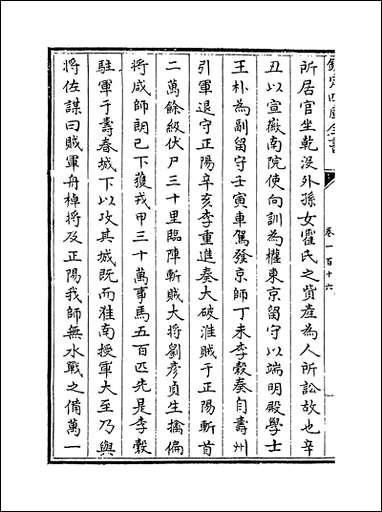 欽定四庫全書
卷一百十六
所居官坐乾没外孫女霍氏之貲產為人所訟故也辛
丑以宣徽南院使向訓為權東京留守以端明殿學士
王朴為副留守壬寅車駕發京師丁未李穀奏自壽州
引軍退守正陽辛亥李重進奏大破淮賊于正陽斬首
二萬餘級伏尸三十里臨陣斬賊大將劉彥貞生擒偏
將咸師朗已下獲戎甲三十萬事馬五百匹先是李穀
駐軍于壽春城下以攻其城既而淮南援軍大至乃與
將佐謀曰賊軍舟棹將及正陽我師無水戰之備萬一